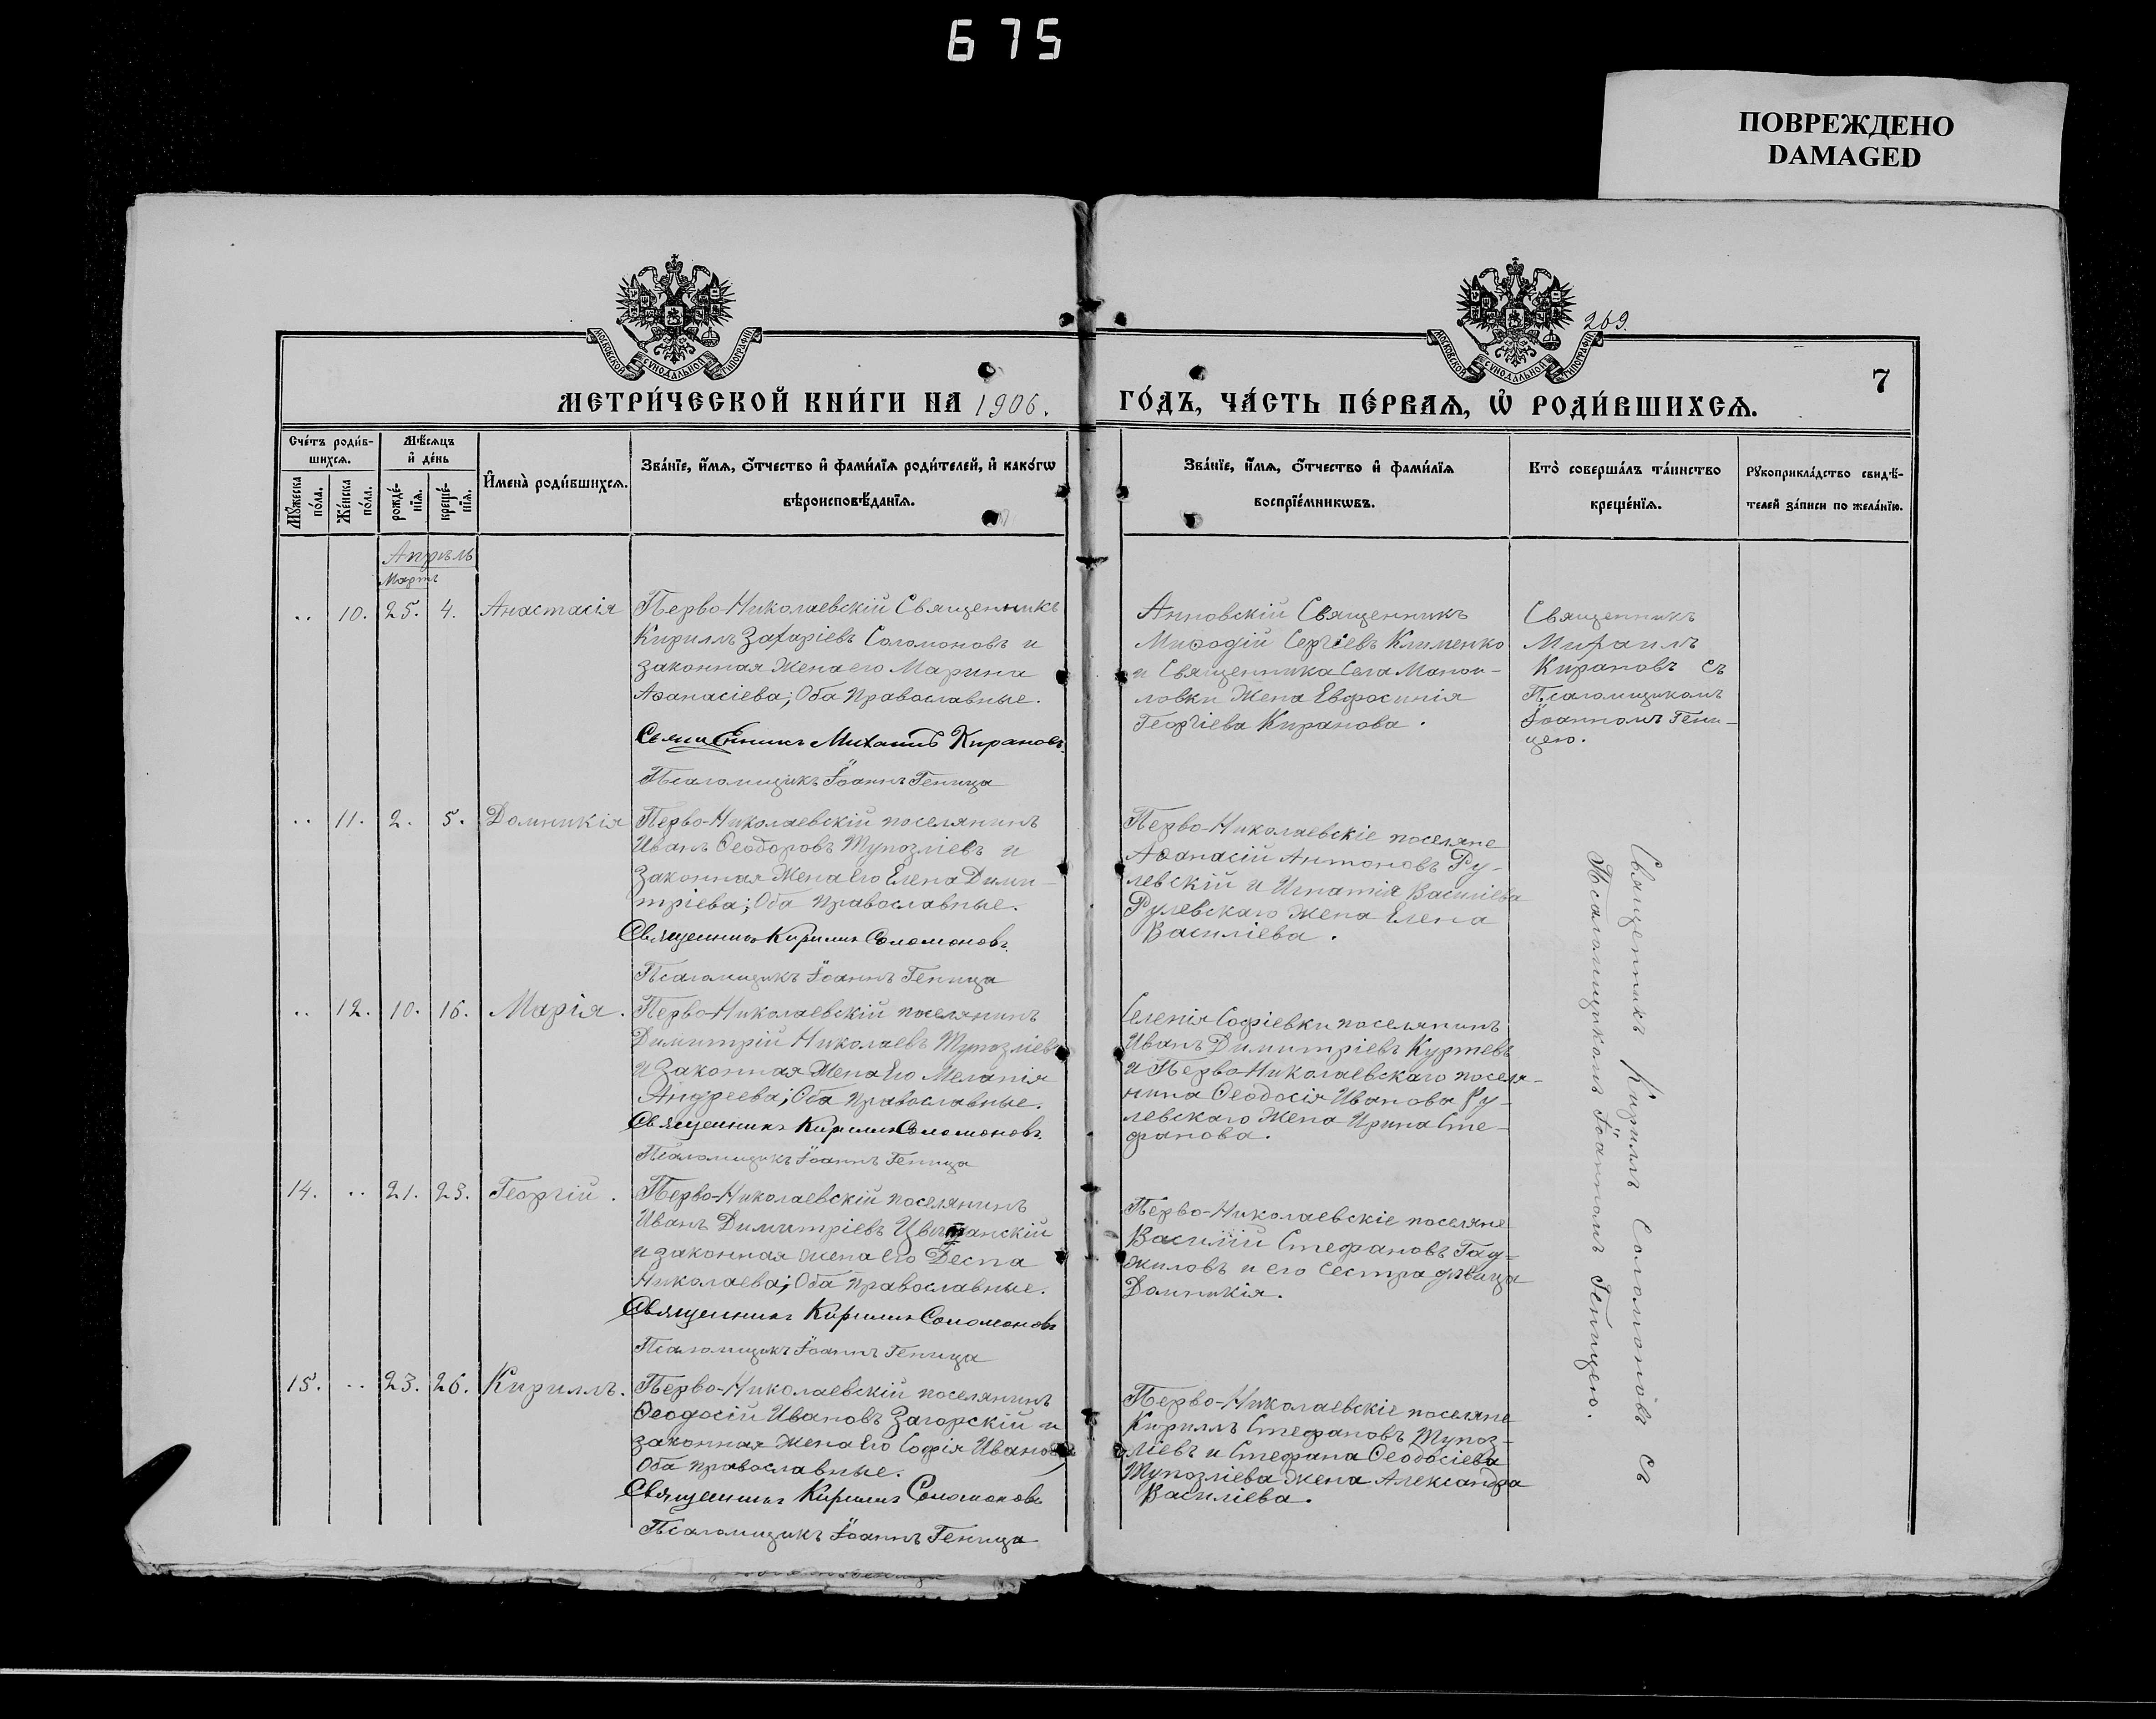 675
ПОВРЕЖДЕНО
DAMAGED
269.
МОСКОВСКОЙ СѴНОДАЛЬНОЙ ТИПОГРАФІИ
МОСКОВСКОЙ СѴНОДАЛЬНОЙ ТИПОГРАФІИ
7
МЕТРИ́ЧЕСКОЙ КНИ́ГИ НА 1906.
ГО́ДЪ, ЧА́СТЬ ПЕ́РВАѦ, Ѡ҆ РОДИ́ВШИХСѦ.
Сче́тъ роди́в-
шихся.
Мѣ́сяцъ
и҆ де́нь
Мꙋ́жеска
по́ла.
Же́нска
по́ла.
рожде́-
нїѧ.
креще́-
нїѧ.
И҆мена̀ роди́вшихсѧ.
Зва́нїе, и҆́мѧ, ѻ҆́тчество и҆ фами́лїѧ роди́телей, и҆ како́гѡ
вѣроисповѣ́данїѧ.
Зва́нїе, и҆́мѧ, ѻ҆́тчество и҆ фами́лїѧ
воспрїе́мникѡвъ.
Кто̀ соверша́лъ та́инство
креще́нїѧ.
Рꙋкоприкла́дство свидѣ́-
телей за́писи по жела́нїю.
Апрѣль
Мартъ
.. 10. 25. 4. Анастасія
Перво-Николаевскій Священникъ
Кириллъ Захаріевъ Соломоновъ и
законная жена его Марина
Аѳанасіева; Оба Православные.
Священникъ Михаилъ Кирановъ.
Псаломщикъ Іоаннъ Геница
Анновскій Священникъ
Миѳодій Сергіевъ Клименко
и Священника Села Манои-
ловки Жена Евфросинія
Георгіева Киранова.
Священникъ
Михаилъ
Кирановъ съ
Псаломщикомъ
Іоанномъ Гени-
цею.
.. 11. 2. 5. Домникія
Перво-Николаевскій поселянинъ
Иванъ Ѳеодоровъ Тупозліевъ и
Законная Жена Его Елена Дими-
тріева; Оба Православные.
Священникъ Кириллъ Соломоновъ.
Псаломщикъ Іоаннъ Геница
Перво-Николаевскіе поселяне
Аѳанасій Антоновъ Ру-
левскій и Игнатія Василіева
Рулевскаго Жена Елена
Василіева.
.. 12. 10. 16. Марія.
Перво-Николаевскій поселянинъ
Димитрій Николаевъ Тупозліевъ
и Законная Жена Его Меланія
Андреева; Оба Православные.
Священникъ Кириллъ Соломоновъ.
Псаломщикъ Іоаннъ Геница
Селенія Софіевки поселянинъ
Иванъ Димитріевъ Куртевъ
и Перво-Николаевскаго поселя-
нина Ѳеодосія Иванова Ру-
левскаго Жена Ирина Сте-
фанова.
14. .. 21. 23. Георгій.
Перво-Николаевскій поселянинъ
Иванъ Димитріевъ Цвѣтанскій
и законная жена его Деспа
Николаева; Оба Православные.
Священникъ Кириллъ Соломоновъ
Псаломщикъ Іоаннъ Геница
Перво-Николаевскіе поселяне
Василій Стефановъ Гау-
жиловъ и его сестра дѣвица
Домникія.
15. .. 23. 26. Кириллъ.
Перво-Николаевскій поселянинъ
Ѳеодосій Ивановъ Загорскій и
законная жена Его Софія Иванова
Оба православные.
Священникъ Кириллъ Соломоновъ
Псаломщикъ Іоаннъ Геница
Перво-Николаевскіе поселяне
Кириллъ Стефановъ Тупоз-
ліевъ и Стефана Ѳеодосіева
Тупозліева жена Александра
Василіева.
Священникъ Кириллъ Соломоновъ съ
Псаломщикомъ Іоанномъ Геницею.